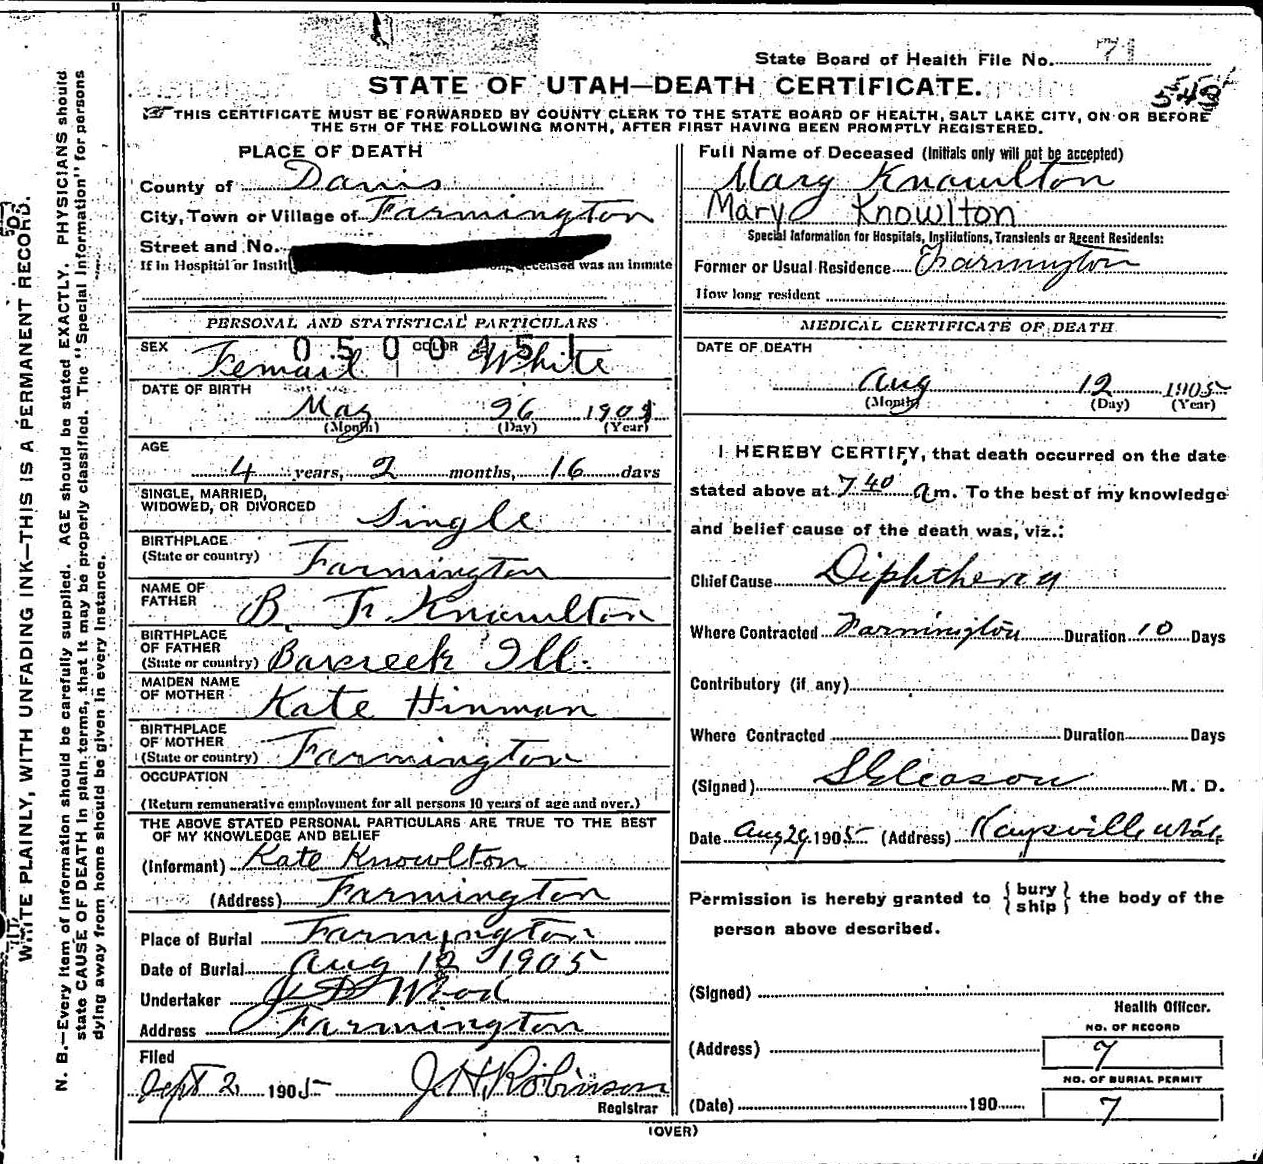 State Board of Health File No. 71
STATE OF UTAH—DEATH CERTIFICATE.
THIS CERTIFICATE MUST BE FORWARDED BY COUNTY CLERK TO THE STATE BOARD OF HEALTH, SALT LAKE CITY, ON OR BEFORE
THE 5TH OF THE FOLLOWING MONTH, AFTER FIRST HAVING BEEN PROMPTLY REGISTERED.
PLACE OF DEATH
County of Davis
City, Town or Village of Farmington
Street and No.
If in Hospital or Instit deceased was an inmate
Full Name of Deceased (Initials only will not be accepted)
Mary Knowlton
Mary Knowlton
Special Information for Hospitals, Institutions, Transients or Recent Residents:
Former or Usual Residence Farmington
How long resident
PERSONAL AND STATISTICAL PARTICULARS
0500451
SEX Femail COLOR White
DATE OF BIRTH
May 26 1901
(Month) (Day) (Year)
AGE
4 years, 2 months, 16 days
SINGLE, MARRIED,
WIDOWED, OR DIVORCED Single
BIRTHPLACE
(State or country) Farmington
NAME OF
FATHER B. F. Knowlton
BIRTHPLACE
OF FATHER
(State or country) Barcreek Ill.
MAIDEN NAME
OF MOTHER Kate Hinman
BIRTHPLACE
OF MOTHER
(State or country) Farmington
OCCUPATION
(Return remunerative employment for all persons 10 years of age and over.)
THE ABOVE STATED PERSONAL PARTICULARS ARE TRUE TO THE BEST
OF MY KNOWLEDGE AND BELIEF
(Informant) Kate Knowlton
(Address) Farmington
Place of Burial Farmington
Date of Burial Aug 12 1905
Undertaker J D Wood
Address Farmington
Filed
Sept 2 1905 J. H. Robinson
Registrar
MEDICAL CERTIFICATE OF DEATH
DATE OF DEATH
Aug 12 1905
(Month) (Day) (Year)
I HEREBY CERTIFY, that death occurred on the date
stated above at 7 40 a m. To the best of my knowledge
and belief cause of the death was, viz.:
Chief Cause Diphtheria
Where Contracted Farmington Duration 10 Days
Contributory (if any)
Where Contracted Duration Days
(Signed) S Gleason M. D.
Date Aug 29 1905 (Address) Kaysville Utah
Permission is hereby granted to { bury
ship } the body of the
person above described.
(Signed)
Health Officer.
NO. OF RECORD
(Address) 7
NO. OF BURIAL PERMIT
(Date) 190 7
(OVER)
WRITE PLAINLY, WITH UNFADING INK—THIS IS A PERMANENT RECORD.
N. B.—Every item of information should be carefully supplied. AGE should be stated EXACTLY. PHYSICIANS should
state CAUSE OF DEATH in plain terms, that it may be properly classified. The "Special Information" for persons
dying away from home should be given in every instance.